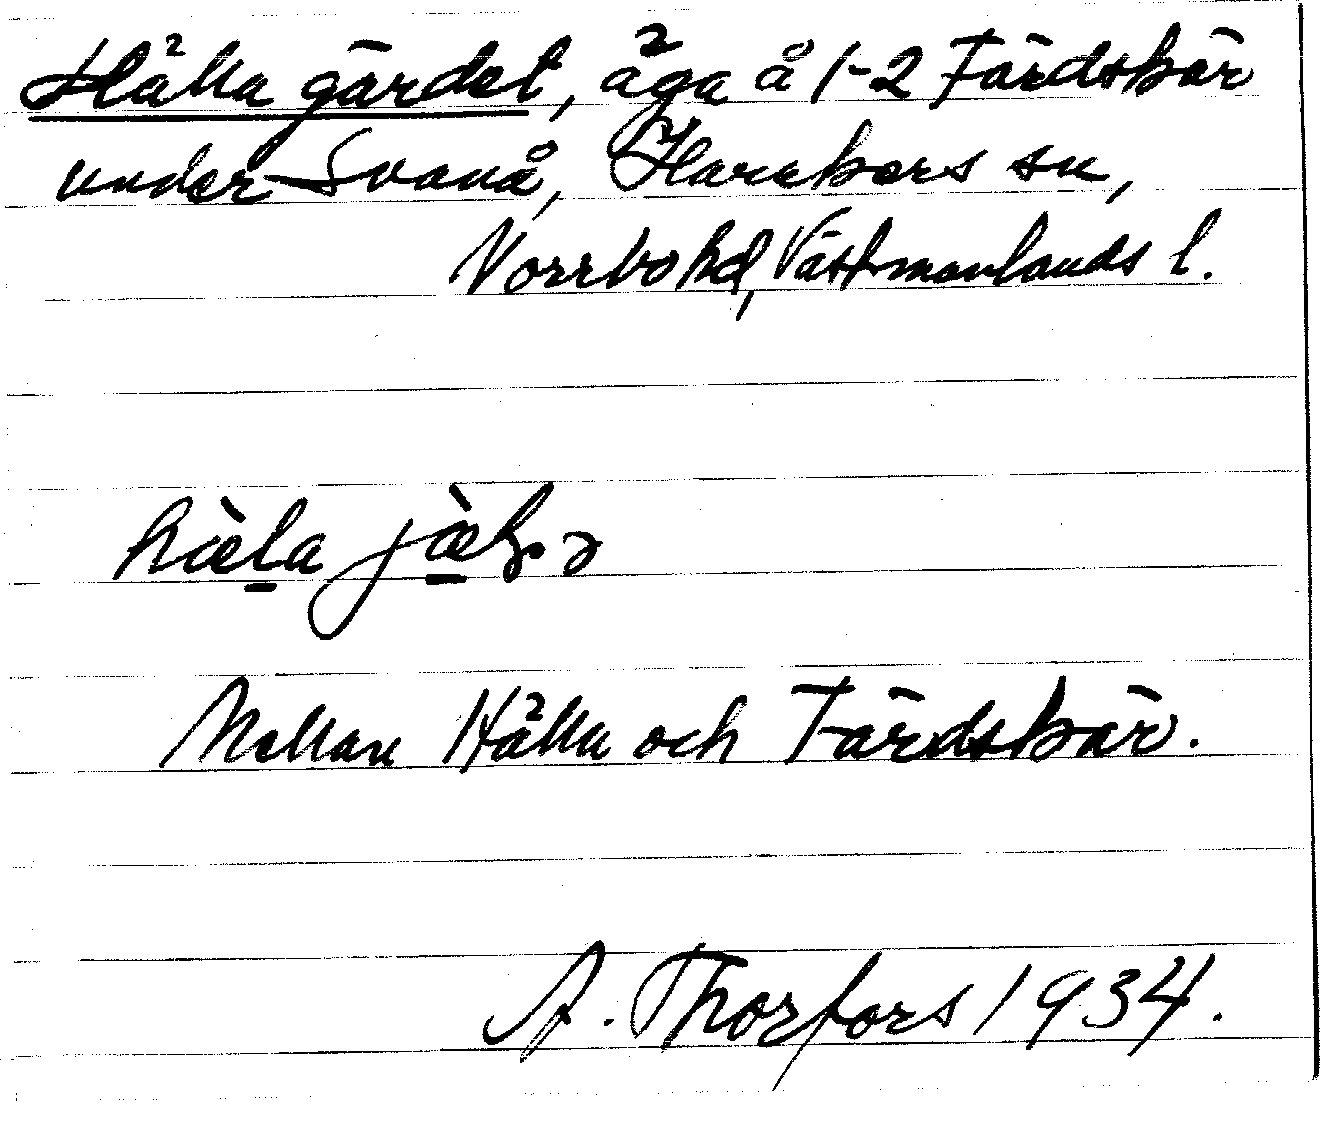 Hälla gärdet, äga å 1-2 Färdskär
under Svanå, Harakers sn,
Norrbo hd, Västmanlands l.
hæ̀la jæ̀ḷə
Mellan Hälla och Färdskär.
A. Thorfors 1934.